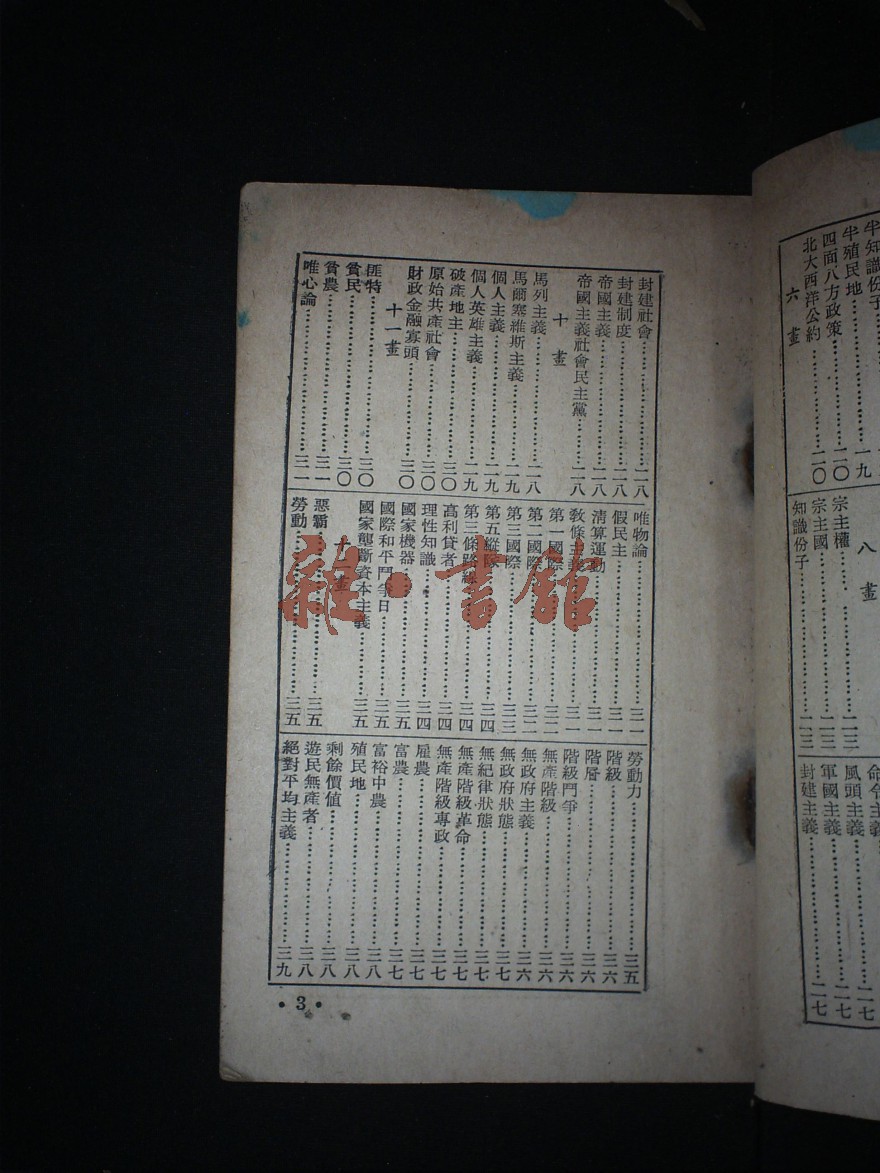 半知識份子
半殖民地……一九
四面八方政策……二〇
北大西洋公約……二〇
六畫
八畫
宗主權……二三
宗主國……二三
知識份子……二三
命令主義……二七
風頭主義……二七
軍國主義……二七
封建主義……二七
封建社會……二八
封建制度……二八
帝國主義……二八
帝國主義社會民主黨……二八
十畫
馬列主義……二八
馬爾塞維斯主義……二九
個人主義……二九
個人英雄主義……二九
破產地主……三〇
原始共產社會……三〇
財政金融寡頭……三〇
十一畫
匪特……三〇
貧民……三〇
貧農……三一
唯心論……三一
唯物論……三一
假民主……三一
清算運動……三一
教條主義……三一
第一國際……三二
第二國際……三二
第三國際……三三
第五縱隊……三四
第三條路線……三四
高利貸者……三四
理性知識……三四
國家機器……三五
國際和平鬥爭日……三五
國家壟斷資本主義……三五
十二畫
惡霸……三五
勞動……三五
勞動力……三五
階級……三六
階層……三六
階級鬥爭……三六
無產階級……三六
無政府主義……三六
無政府狀態……三七
無紀律狀態……三七
無產階級革命……三七
無產階級專政……三七
雇農……三七
富農……三七
富裕中農……三八
殖民地……三八
剩餘價值……三八
遊民無產者……三八
絕對平均主義……三九
• 3 •
雜·書館